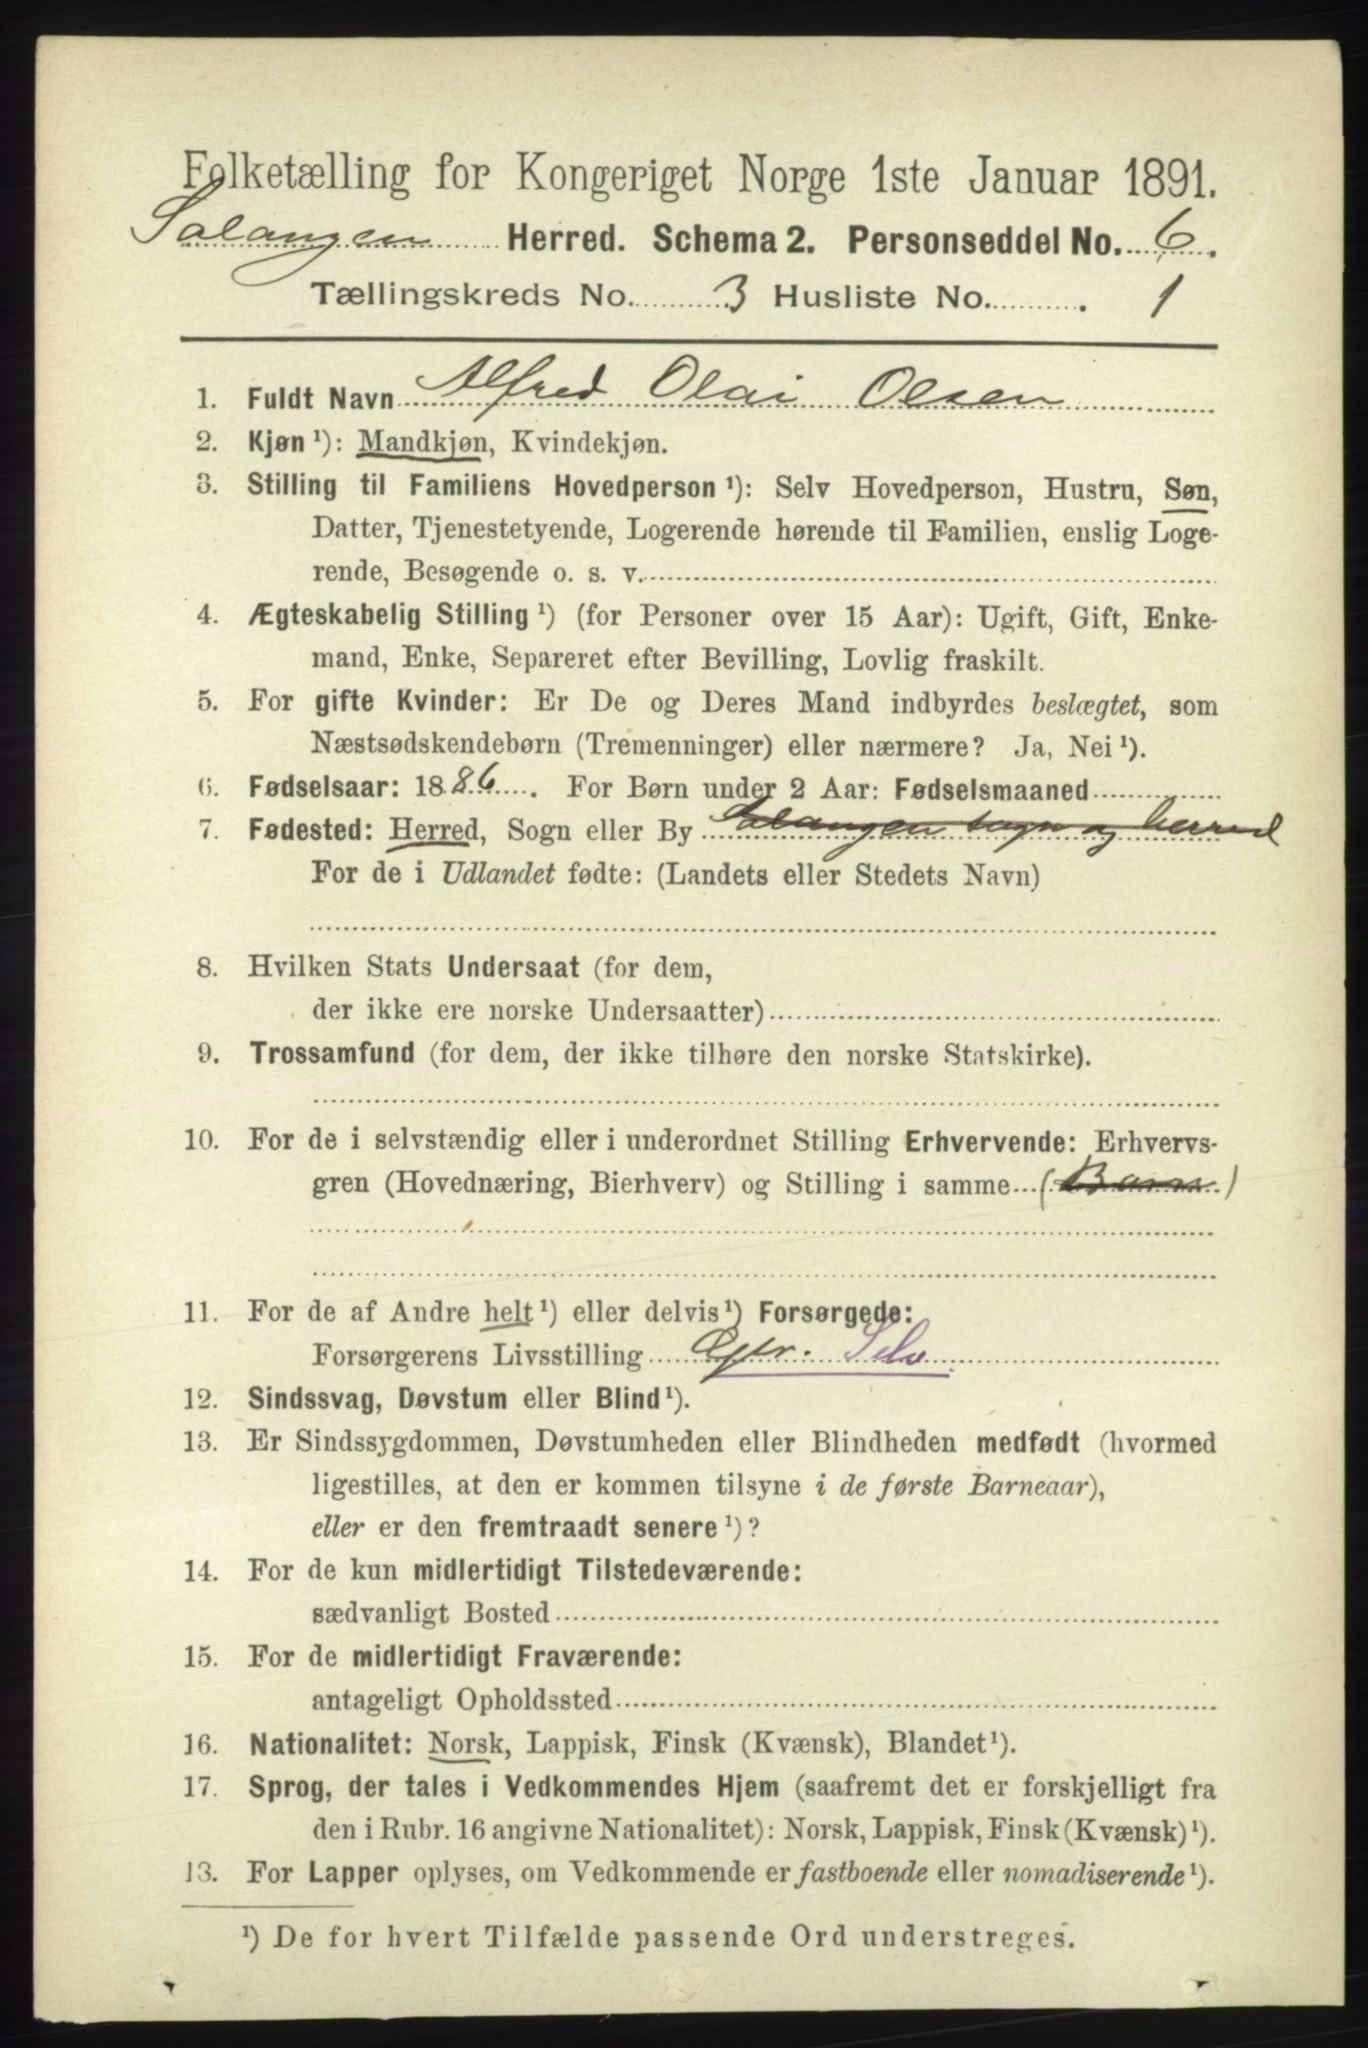 Folketælling for Kongeriget Norge 1ste Januar 1891.
Salangen Herred. Schema 2. Personseddel No. 6.
Tællingskreds No. 3 Husliste No. 1
1. Fuldt Navn Alfred Olai Olsen
2. Kjøn ¹): Mandkjøn, Kvindekjøn.
3. Stilling til Familiens Hovedperson ¹): Selv Hovedperson, Hustru, Søn,
Datter, Tjenestetyende, Logerende hørende til Familien, enslig Loge-
rende, Besøgende o. s. v.
4. Ægteskabelig Stilling ¹) (for Personer over 15 Aar): Ugift, Gift, Enke-
mand, Enke, Separeret efter Bevilling, Lovlig fraskilt.
5. For gifte Kvinder: Er De og Deres Mand indbyrdes beslægtet, som
Næstsødskendebørn (Tremenninger) eller nærmere? Ja, Nei ¹).
6. Fødselsaar: 1886. For Børn under 2 Aar: Fødselsmaaned
7. Fødested: Herred, Sogn eller By Salangen sogn og herred
For de i Udlandet fødte: (Landets eller Stedets Navn)
8. Hvilken Stats Undersaat (for dem,
der ikke ere norske Undersaatter)
9. Trossamfund (for dem, der ikke tilhøre den norske Statskirke).
10. For de i selvstændig eller i underordnet Stilling Erhvervende: Erhvervs-
gren (Hovednæring, Bierhverv) og Stilling i samme (Barn)
11. For de af Andre helt ¹) eller delvis ¹) Forsørgede:
Forsørgerens Livsstilling Gjbr. Selv
12. Sindssvag, Døvstum eller Blind ¹).
13. Er Sindssygdommen, Døvstumheden eller Blindheden medfødt (hvormed
ligestilles, at den er kommen tilsyne i de første Barneaar),
eller er den fremtraadt senere ¹)?
14. For de kun midlertidigt Tilstedeværende:
sædvanligt Bosted
15. For de midlertidigt Fraværende:
antageligt Opholdssted
16. Nationalitet: Norsk, Lappisk, Finsk (Kvænsk), Blandet ¹).
17. Sprog, der tales i Vedkommendes Hjem (saafremt det er forskjelligt fra
den i Rubr. 16 angivne Nationalitet): Norsk, Lappisk, Finsk (Kvænsk) ¹).
13. For Lapper oplyses, om Vedkommende er fastboende eller nomadiserende ¹).
¹) De for hvert Tilfælde passende Ord understreges.